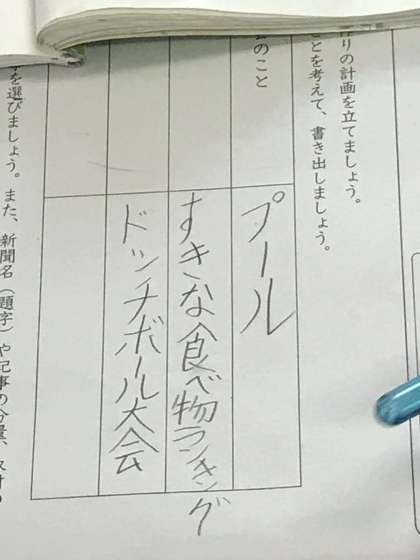 りの計画を立てましょう。
ことを考えて、書き出しましょう。
のこと
プール
すきな食べ物ランキング
ドッチボール大会
を選びましょう。また、新聞名(題字)や記事の分量、